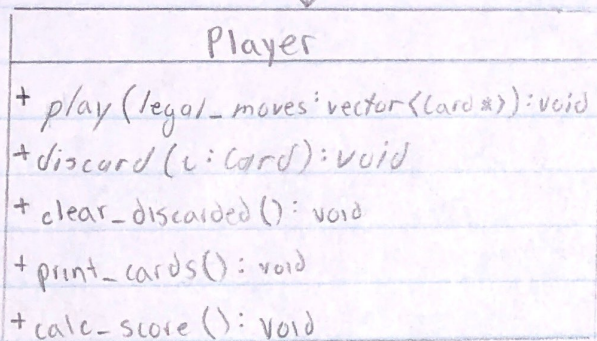 Player
+ play(legal_moves:vector<Card*>):void
+ discard(c:Card):void
+ clear_discarded(): void
+ print_cards(): void
+ calc_score(): void